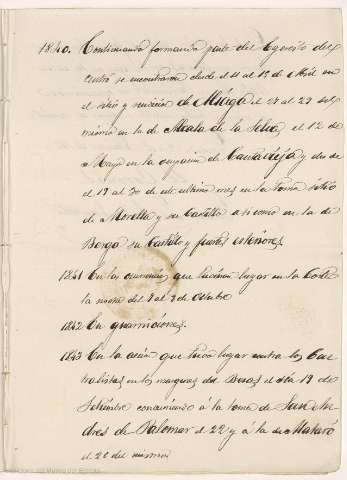 1840. Continuando formando parte del Ejercito del
Centro se encontraron desde el 11 al 15 de Abril en
el sitio y rendicion de Aliaga el 27 al 29 del
mismo en la de Alcala de la Selva, el 12 de
Mayo en la ocupacion de Cantavieja y des de
el 19 al 30 de este ultimo mes en la toma sitio
de Morella y su Castillo asi como en la de
Berga su Castillo y fuertes esteriores.
1841 En las ocurrencias que tuvieron lugar en la Corte
la noche del 7 al 8 de Octubre
1842 En guarniciones.
1843 En la accion que tuvo lugar contra los Cen
tralistas en las margenes del Besos el dia 19 de
Setiembre concurriendo á la toma de San An
dres de Palomar el 22 y á la de Mataró
el 26 del mismo